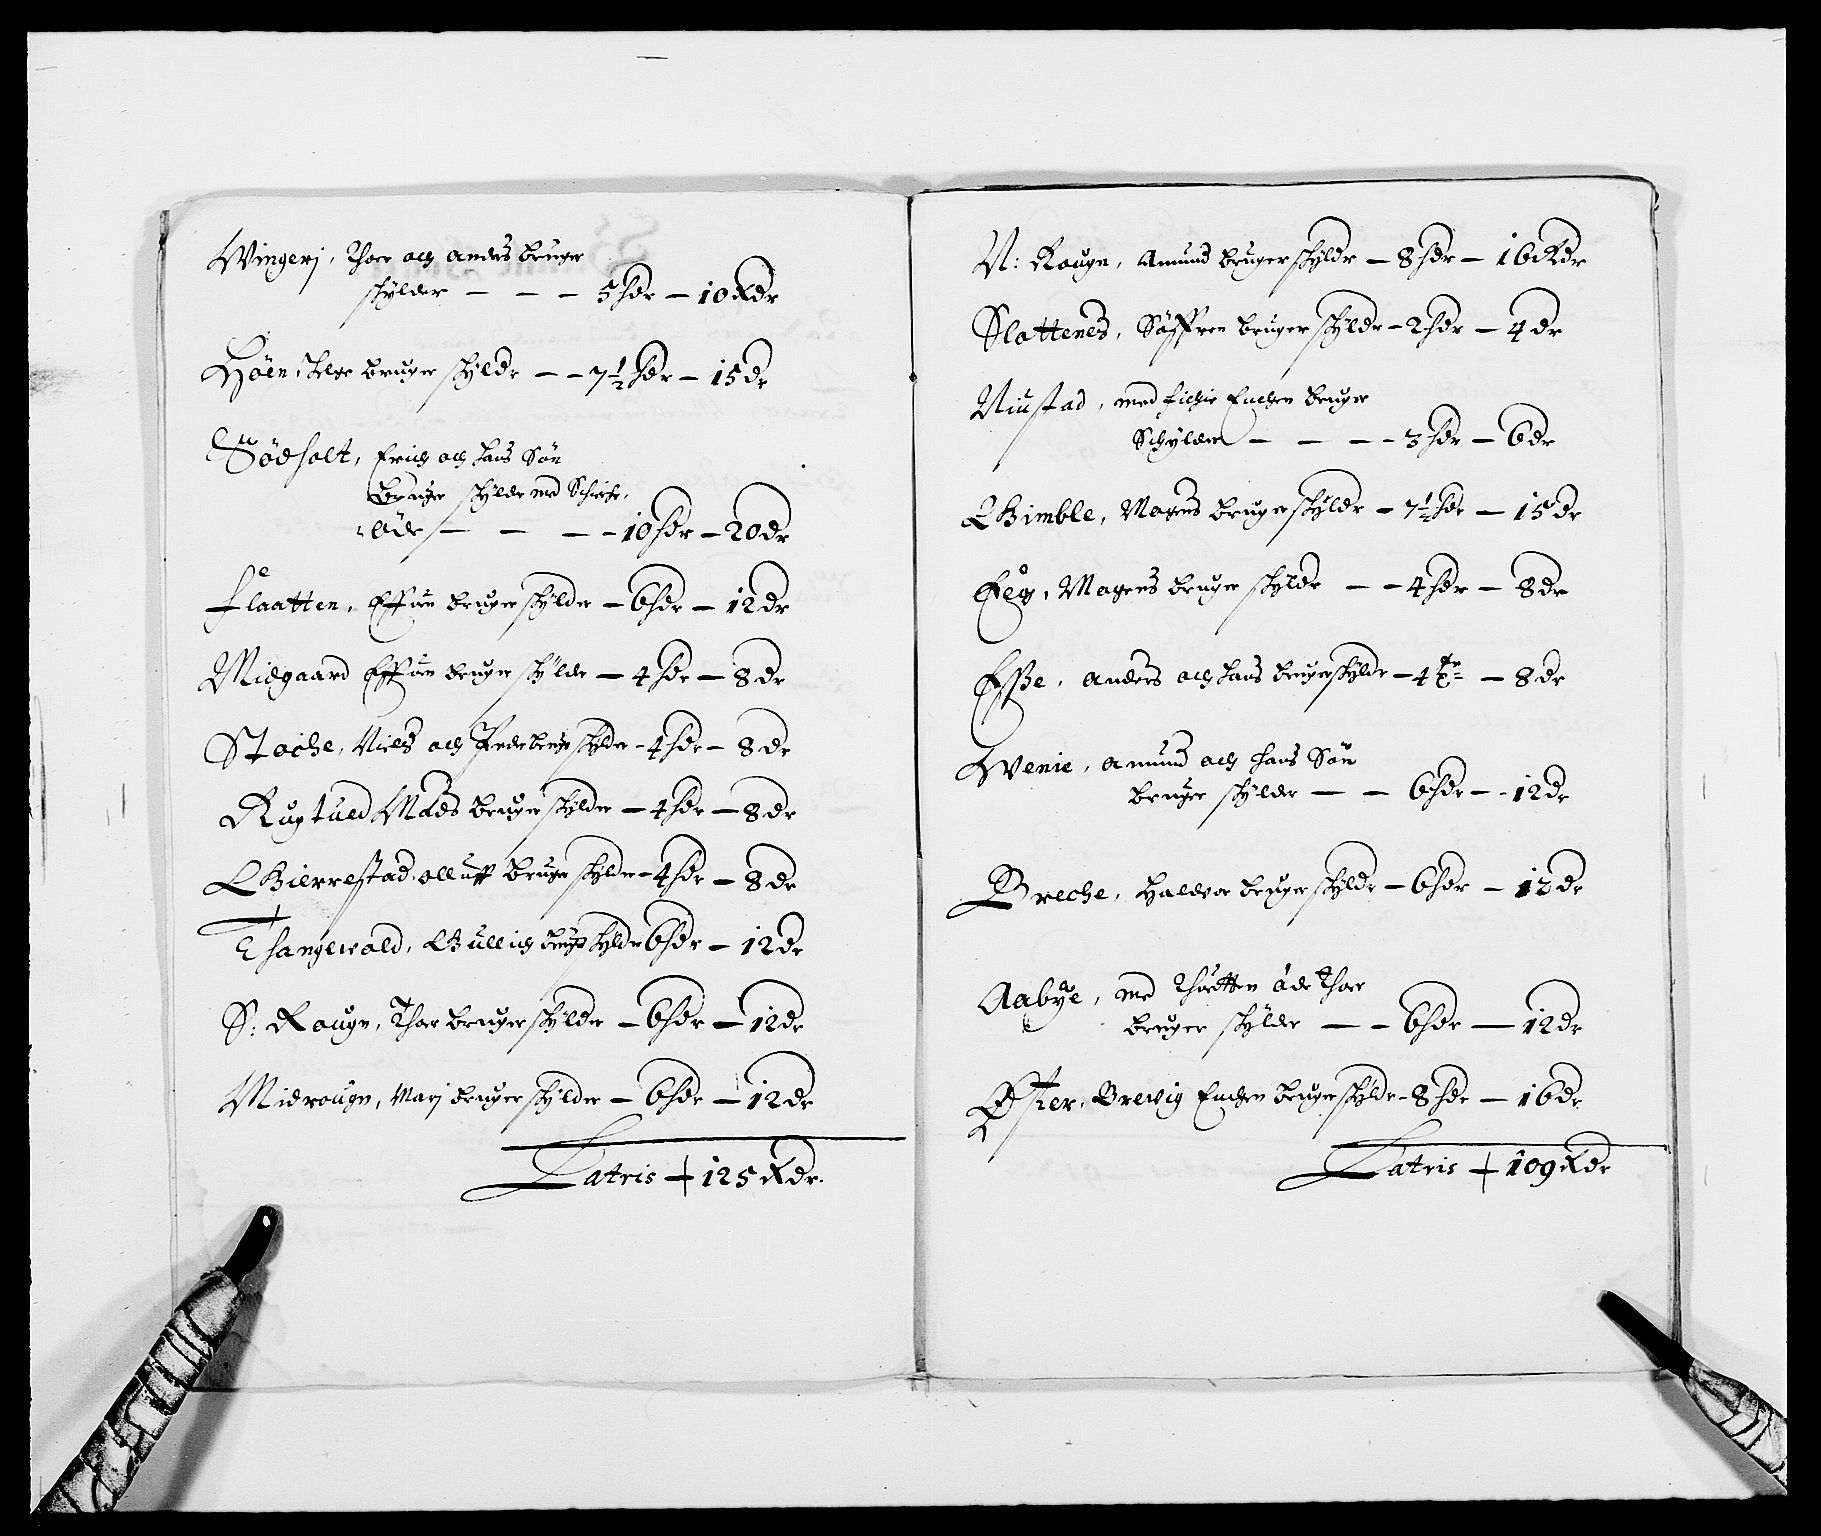 Wingerj, Thor och Anders bruger
schylder — — — 5 hdr — 10 Rdr
Höen, Helge bruger schylder — — 7½ hdr — 15 dr
Södholt, Erich och hans Sön
bruger schylder med
öde — — — — 10 hdr — 20 dr
Flaatten, bruger schylder — 6 hdr — 12 dr
Midgaard bruger schylder — 4 hdr — 8 dr
Stoche, Niels och Peder bruger schylder — 4 hdr — 8 dr
Rugtued Mads bruger schylder — 4 hdr — 8 dr
Bierrestad, Olluff bruger schylder — 4 hdr — 8 dr
Thangewald, Gullich bruger schylder 6 hdr — 12 dr
S: Rougn, Thor bruger schylder — 6 hdr — 12 dr
Midrougn, Marj bruger schylder — 6 hdr — 12 dr
Latris + 125 Rdr.
N: Rougn, Amund bruger schylder — 8 hdr — 16 Rdr
Slottenes, Söffren bruger schylder — 2 hdr — 4 dr
Niustad, med bruger
Schylder — — — 3 hdr — 6 dr
Gimble, Mogens bruger schylder — 7½ hdr — 15 dr
Eeg, Mogens bruger schylder — — 4 hdr — 8 dr
Esse, Anders och hans bruger schylder — 4 — 8 dr
Wenie, Amund och hans Sön
bruger schylder — — 6 hdr — 12 dr
Breche, Haldvor bruger schylder — 6 hdr — 12 dr
Aabye, med öde Thor
bruger schylder — — 6 hdr — 12 dr
Öster, Brevig bruger schylder — 8 hdr — 16 dr
Latris + 109 Rdr